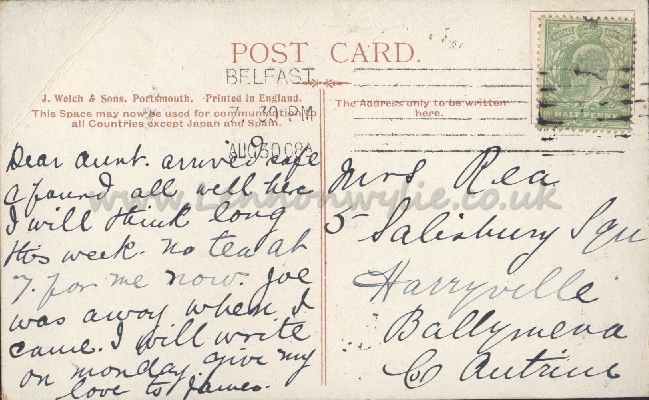 POST CARD.
BELFAST
7 30 PM
AUG 30 08
J. Welch & Sons, Portsmouth. Printed in England.
This Space may now be used for communication to
all Countries except Japan and Spain.
The Address only to be written
here.
HALFPENNY
Dear Aunt. arrived safe
& found all well here
I will think long
this week. no tea at
7. for me now. Joe
was away when I
came. I will write
on monday. give my
love to James.
Mrs Rea
5 Salisbury Squ
Harryville
Ballymena
Co Antrim
www.Lennonwylie.co.uk